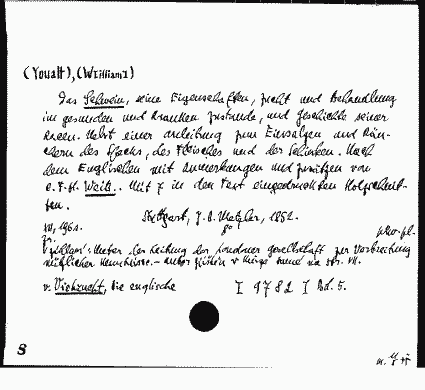 (Youatt), (W[illiam])
Das Schwein, seine Eigenschaften, Zucht und Behandlung
im gesunden und kranken Zustande, und Geschichte seiner
Racen. Nebst einer Anleitung zum Einsalzen und Räu-
chern des Specks, des Fleisches und der Schinken. Nach
dem Englischen mit Anmerkungen und Zusätzen von
E. F. H. Weih.. Mit 7 in den Text eingedruckten Holzschnit-
ten.
Stuttgart, J. B. Metzler, 1852.
8°
Unter der Leitung der Londoner Gesellschaft zur Verbreitung
nützlicher Kenntnisse.
v. Viehzucht, die englische I 9782 I Bd. 5.
S